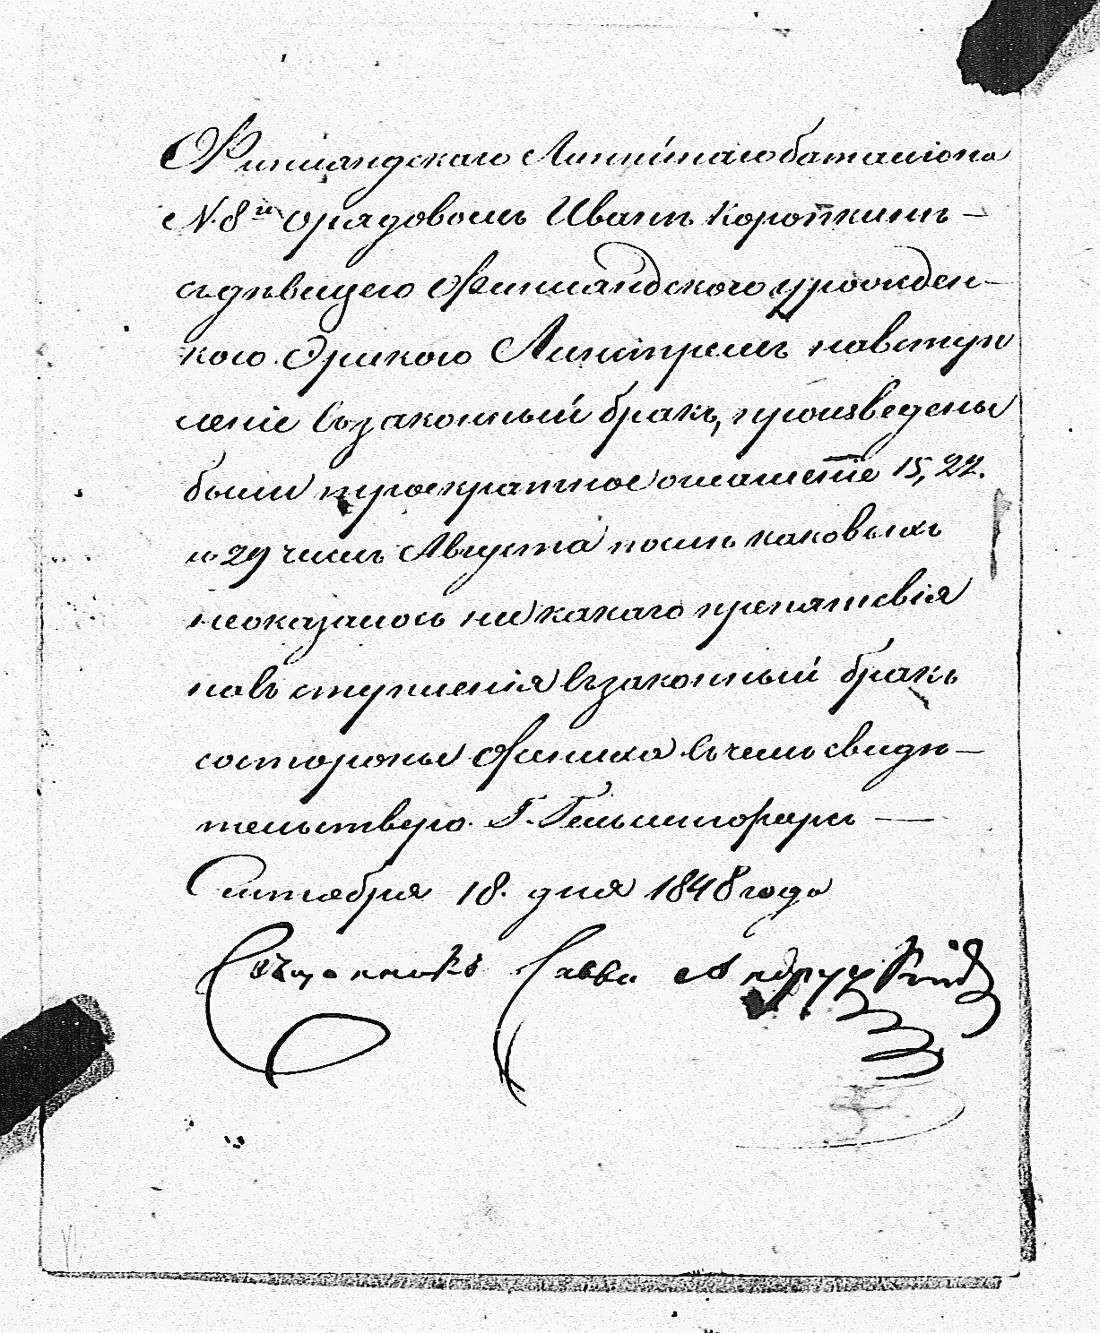 Финляндскаго Линѣйнаго баталіона
№ 8й орядовомъ Иванъ Короткинъ —
съ дѣвицею Финляндскою урожден-
кою Эрикою Линстремъ навступ
леніе възаконный бракъ, произведены
были троекратное огłашеніе 15, 22.
и 29 числъ Августа послѣ каковыхъ
неоказалось ни какаго препятсвія
навъ ступленія въ законный бракъ
состороны Жениха въ чемъ свидѣ —
тельствую. Г. Гельсингфорсъ —
Сентября 18. дня 1848 года
Священникъ Савва